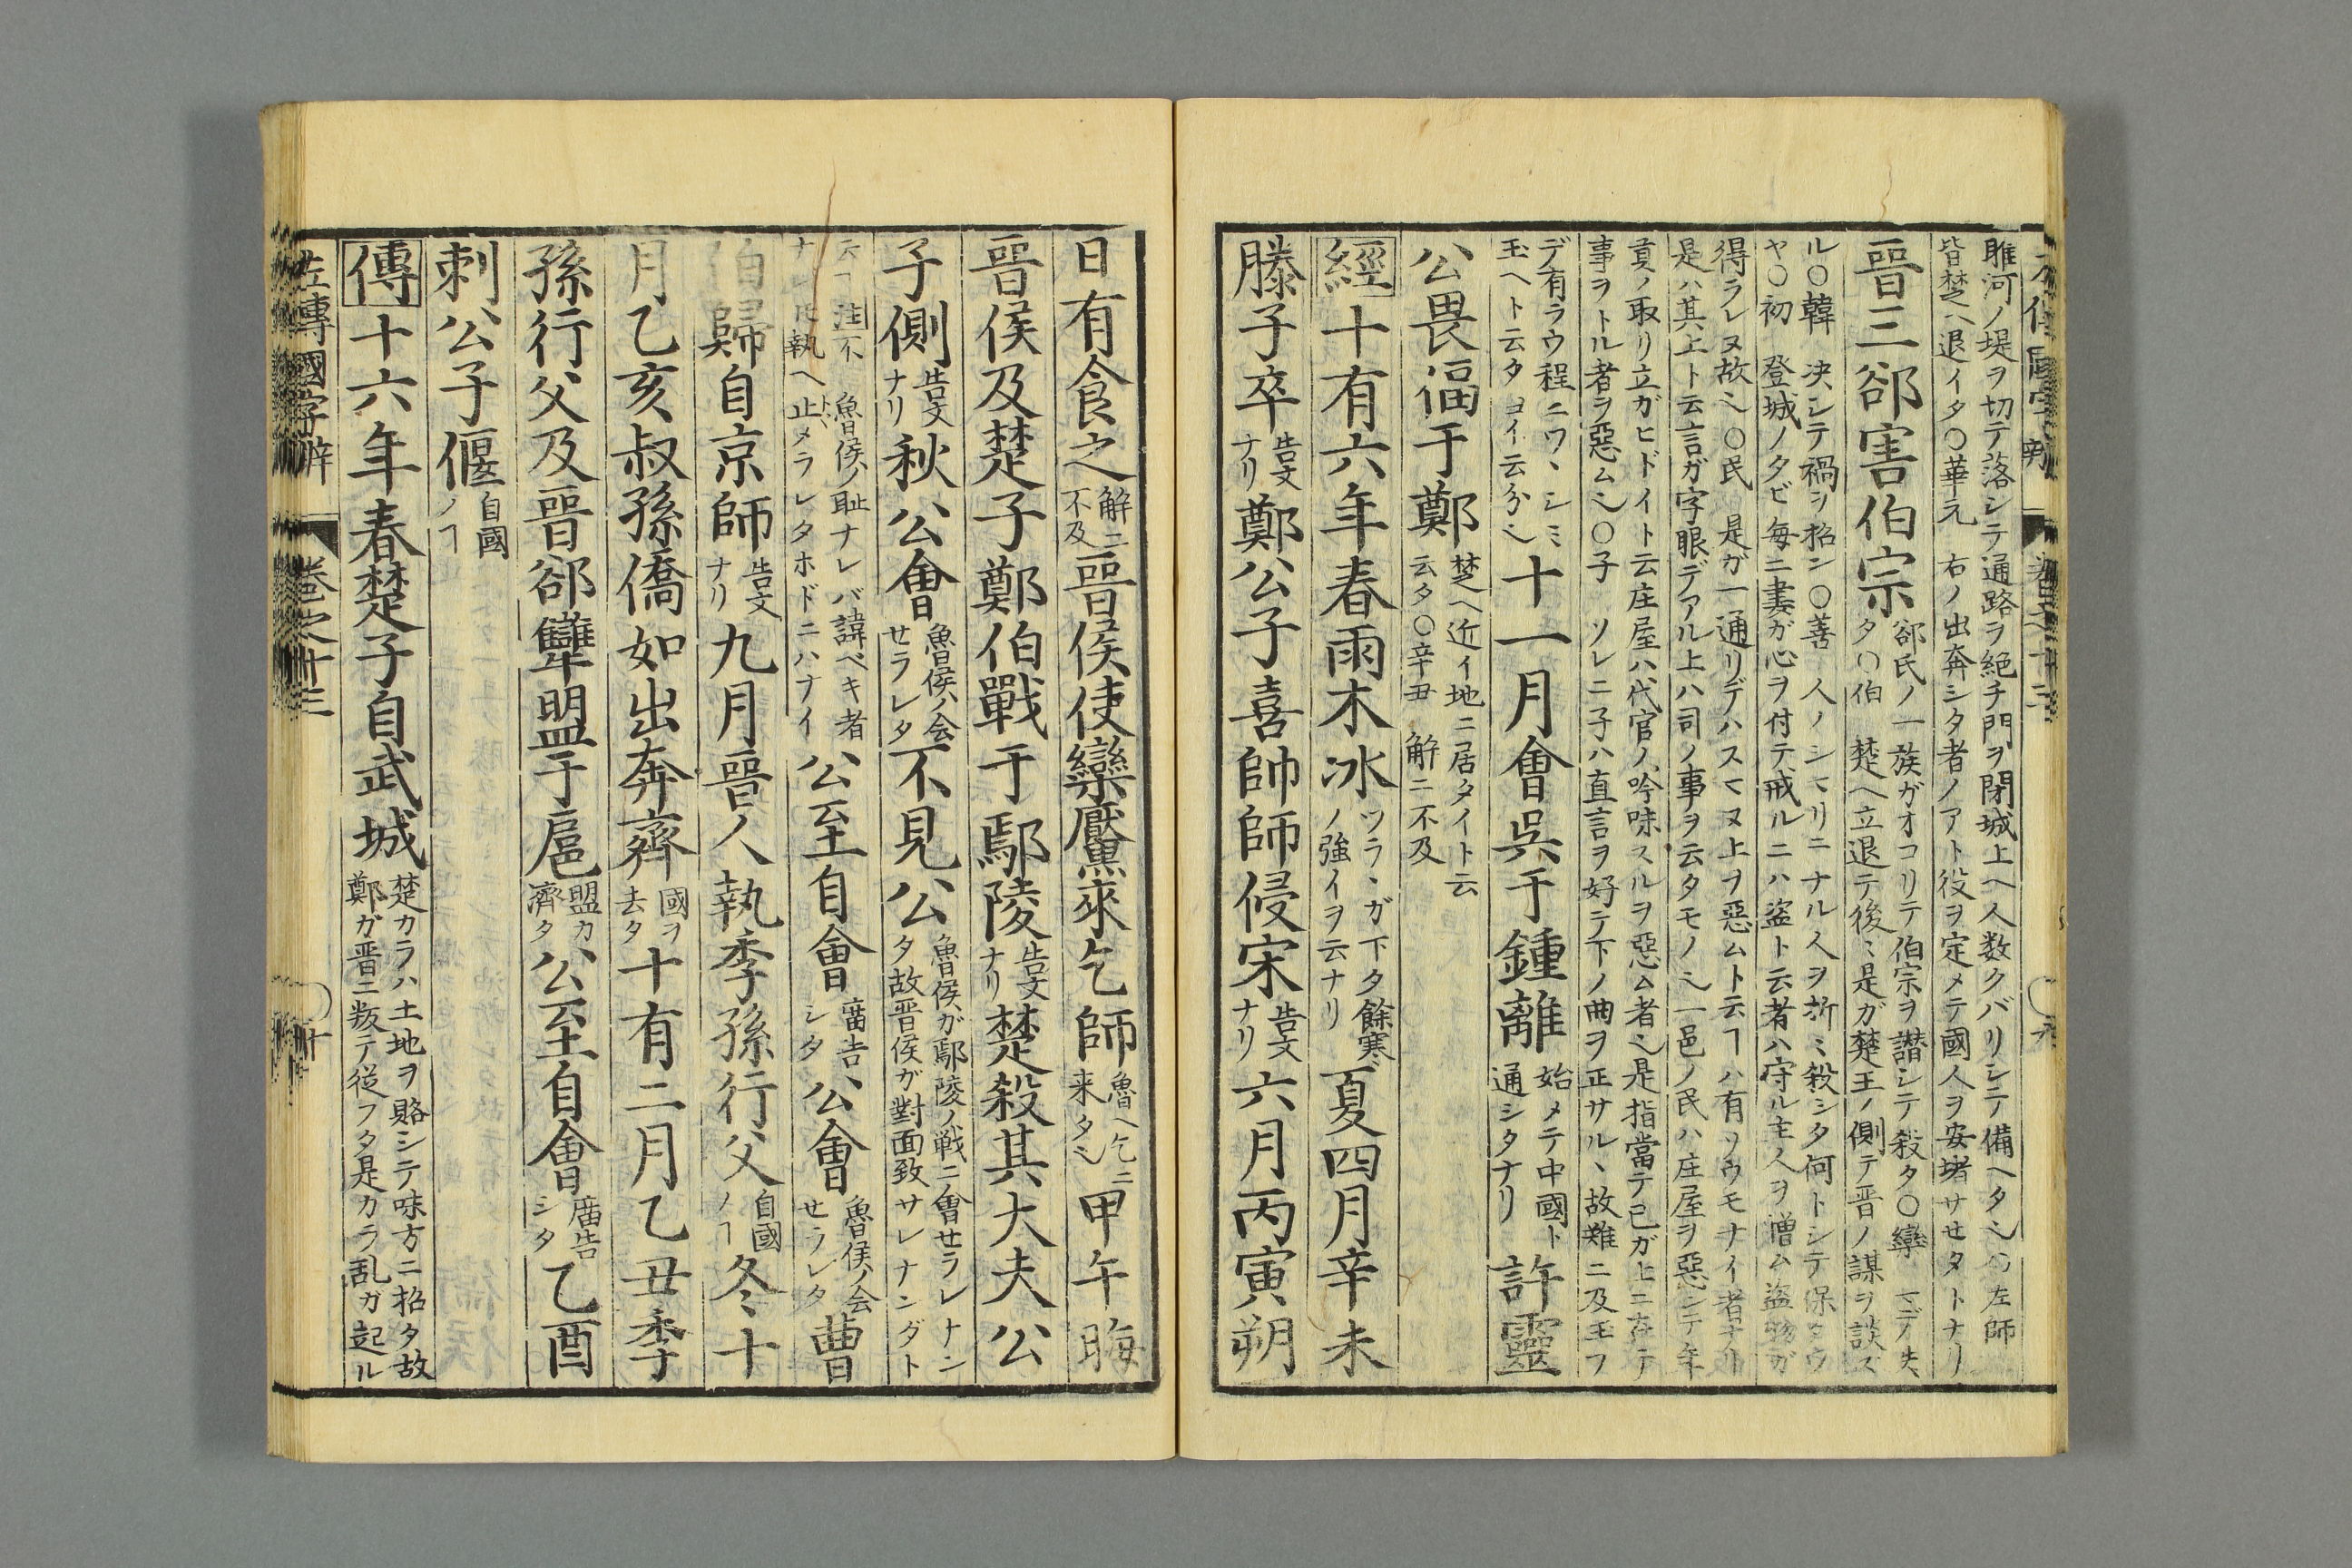 睢河ノ堤ヲ切テ落シテ通路ヲ絶チ門ヲ閉城上ヘ人数クバリシテ備ヘタ〇左師
皆楚ヘ退イタ〇華元 右ノ出奔シタ者ノアト役ヲ定メテ國人ヲ安堵サセタトナリ
晉三郤害伯宗
郤氏ノ一族ガオコリテ伯宗ヲ譖シテ殺タ〇
タ〇伯 楚ヘ立退テ後ミ是ガ楚王ノ側テ晋ノ謀ヲ談ズ
ル〇韓 决シテ禍ヲ招ン〇善 人ノシマリニナル人ヲ折ミ殺シタ何トシテ保タウ
ヤ〇初 登城ノタビ毎ニ妻ガ心ヲ付テ戒ルニハ盗ト云者ハ守ル主人ヲ憎ム盗物ガ
得ラレヌ故〇民 是ガ一通リデハスマヌ上ヲ惡ムト云ヿハ有ソウモナイ者ナリ
是ハ其上ト云言ガ字眼デアル上ハ司ノ事ヲ云タモノ一邑ノ民ハ庄屋ヲ惡シテ年
貢ノ取リ立ガヒドイト云庄屋ハ代官ノ吟味スルヲ惡ム者是指當テ己ガ上ニ在テ
事ヲトル者ヲ惡ム〇子 ソレニ子ハ直言ヲ好テ下ノ曲ヲ正サル故難ニ及玉フ
デ有ラウ程ニワヽシミ
玉ヘト云タヨイ云分
十一月會吳于鍾離
始メテ中國ト
通シタナリ
許靈
公畏偪于鄭
楚ヘ近イ地ニ居タイト云
云タ〇辛丑 解ニ不及
經十有六年春雨木冰
ツラヽガ下タ餘寒
ノ強イヲ云ナリ
夏四月辛未
滕子卒
告文
ナリ
鄭公子喜帥師侵宋
告文
ナリ
六月丙寅朔
日有食之
解ニ
不及
晉侯使欒黶來乞師
魯ヘ乞ニ
来タ
甲午晦
晉侯及楚子鄭伯戰于鄢陵
告文
ナリ
楚殺其大夫公
子側
告文
ナリ
秋公會
魯侯ノ会
せラレタ
不見公
魯侯ガ鄢陵ノ戦ニノ會せラレナン
タ故晋侯ガ對面致サレナンダト
云ヿ注不 魯侯ノ耻ナレバ諱ベキ者
ナレ𪜈執ヘ止メラレタホドニハナイ
公至自會
廟告
シタ
公會
魯侯ノ会
せラレタ
曹
伯歸自京師
告文
ナリ
九月晉人執季孫行父
自國
ノヿ
冬十
月乙亥叔孫僑如出奔齊
國ヲ
去タ
十有二月乙丑季
孫行父及晉郤犨盟于扈
盟カ
濟タ
公至自會
廟告
シタ
乙酉
刺公子偃
自國
ノヿ
傳十六年春楚子自武城
楚カラハ土地ヲ賂シテ味方ニ招タ故
鄭ガ晋ニ叛テ従フタ是カラ乱ガ起ル
左傳國字辯 卷之十三 十